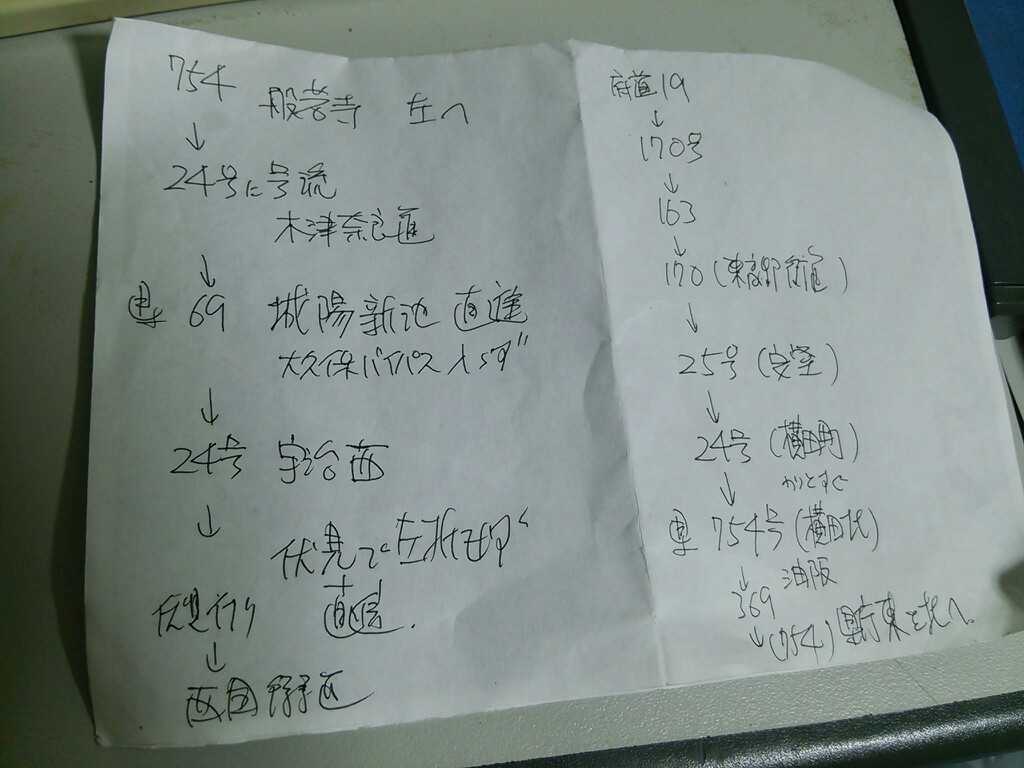 府道19
↓
170号
↓
163
↓
170 (東高野街道)
↓
25号 (安堂)
↓
24号 (横田町)
↓
754号 (横田北)
↓ 油阪
369
↓ (754) 県庁東を北へ
754
般若寺 左へ
↓
24号に号流
木津奈良道
↓
69 城陽新池 直進
大久保バイパス入らず
↓
24号 宇治西
↓
伏見で左折せず
直進.
伏見行り
↓